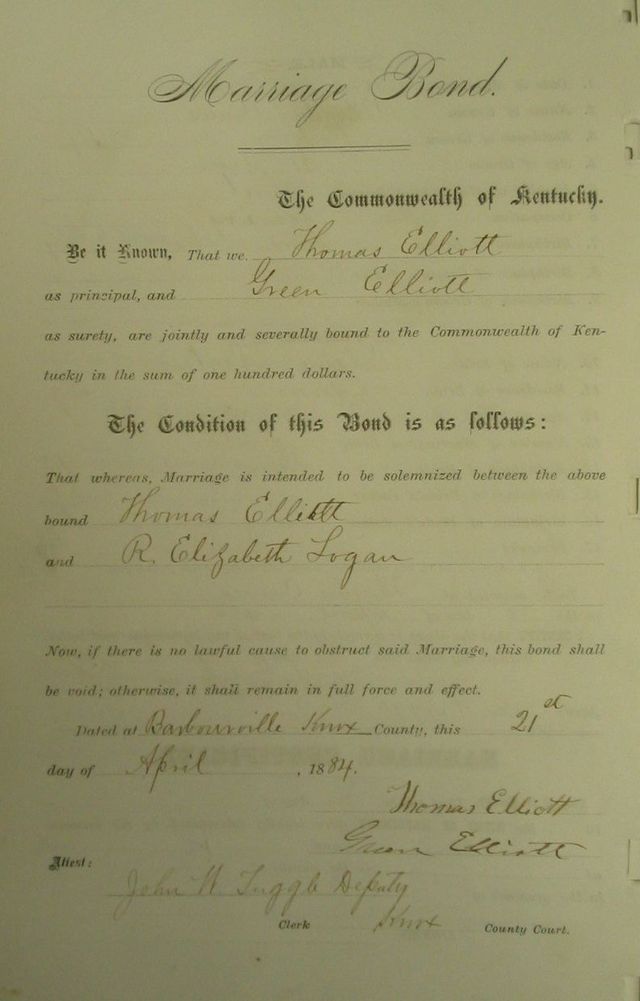 Marriage Bond.
The Commonwealth of Kentucky.
Be it Known, That we Thomas Elliott
as principal, and Green Elliott
as surety, are jointly and severally bound to the Commonwealth of Ken-
tucky in the sum of one hundred dollars.
The Condition of this Bond is as follows:
That whereas, Marriage is intended to be solemnized between the above
bound Thomas Elliott
and R. Elizabeth Logan
Now, if there is no lawful cause to obstruct said Marriage, this bond shall
be void; otherwise, it shall remain in full force and effect.
Dated at Barbourville Knox County, this 21st
day of April, 1884.
Thomas Elliott
Green Elliott
Attest:
John W Tuggle Deputy
Clerk Knox County Court.